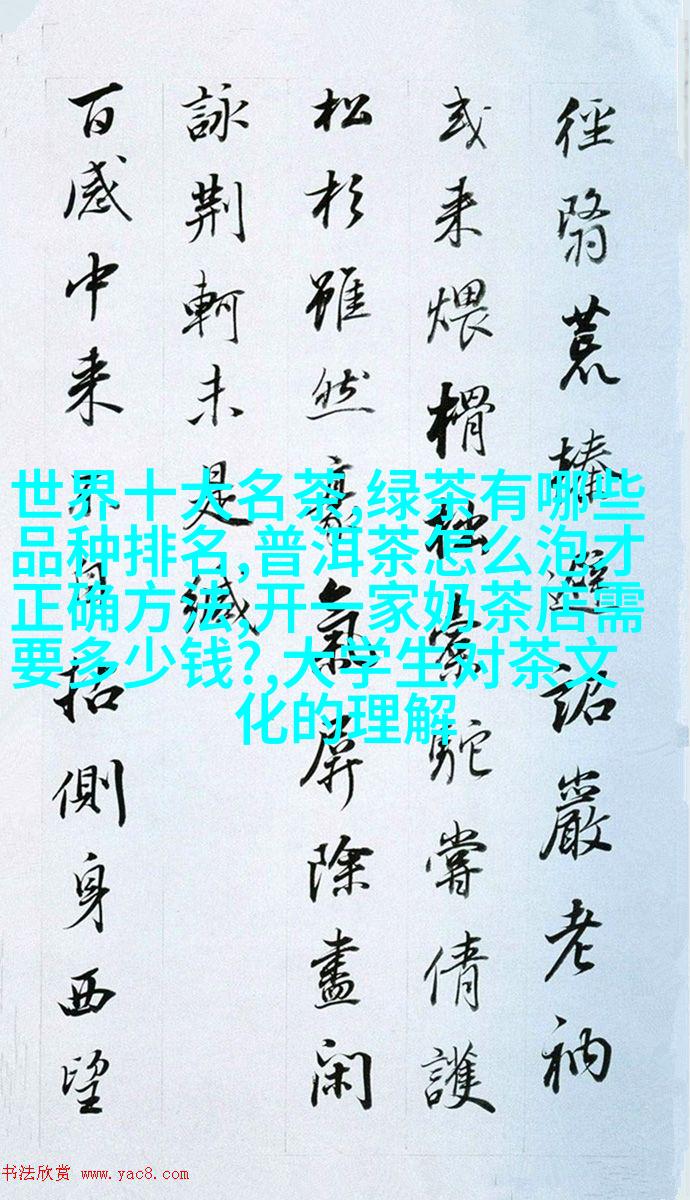 徑翳荒榛嚴老衲
或来煨榾柮橐駝嘗倩護
松杉雖然豪氣屏除盡閑
詠荆軻未是緘
百感中来不自側身西望
世界十大名茶,绿茶有哪些
品种排名,普洱茶怎么泡才
正确方法,开一家奶茶店需
要多少钱?,大学生对茶文
化的理解
书法欣赏 www.yac8.com